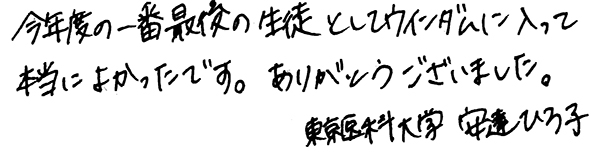 今年度の一番最後の生徒としてウインダムに入って
本当によかったです。ありがとうございました。
東京医科大学 安達ひろ子